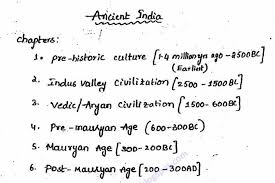 Ancient India
chapters:
1. Pre-historic culture [1.4 million yrs ago - 2500BC]
(Earliest)
2. Indus Valley Civilization [2500 - 1500BC]
3. Vedic/Aryan Civilization [1500 - 600BC]
4. Pre - mauryan Age (600-300BC)
5. Mauryan Age [300-200BC]
6. Post-Mauryan Age [200 - 300AD]